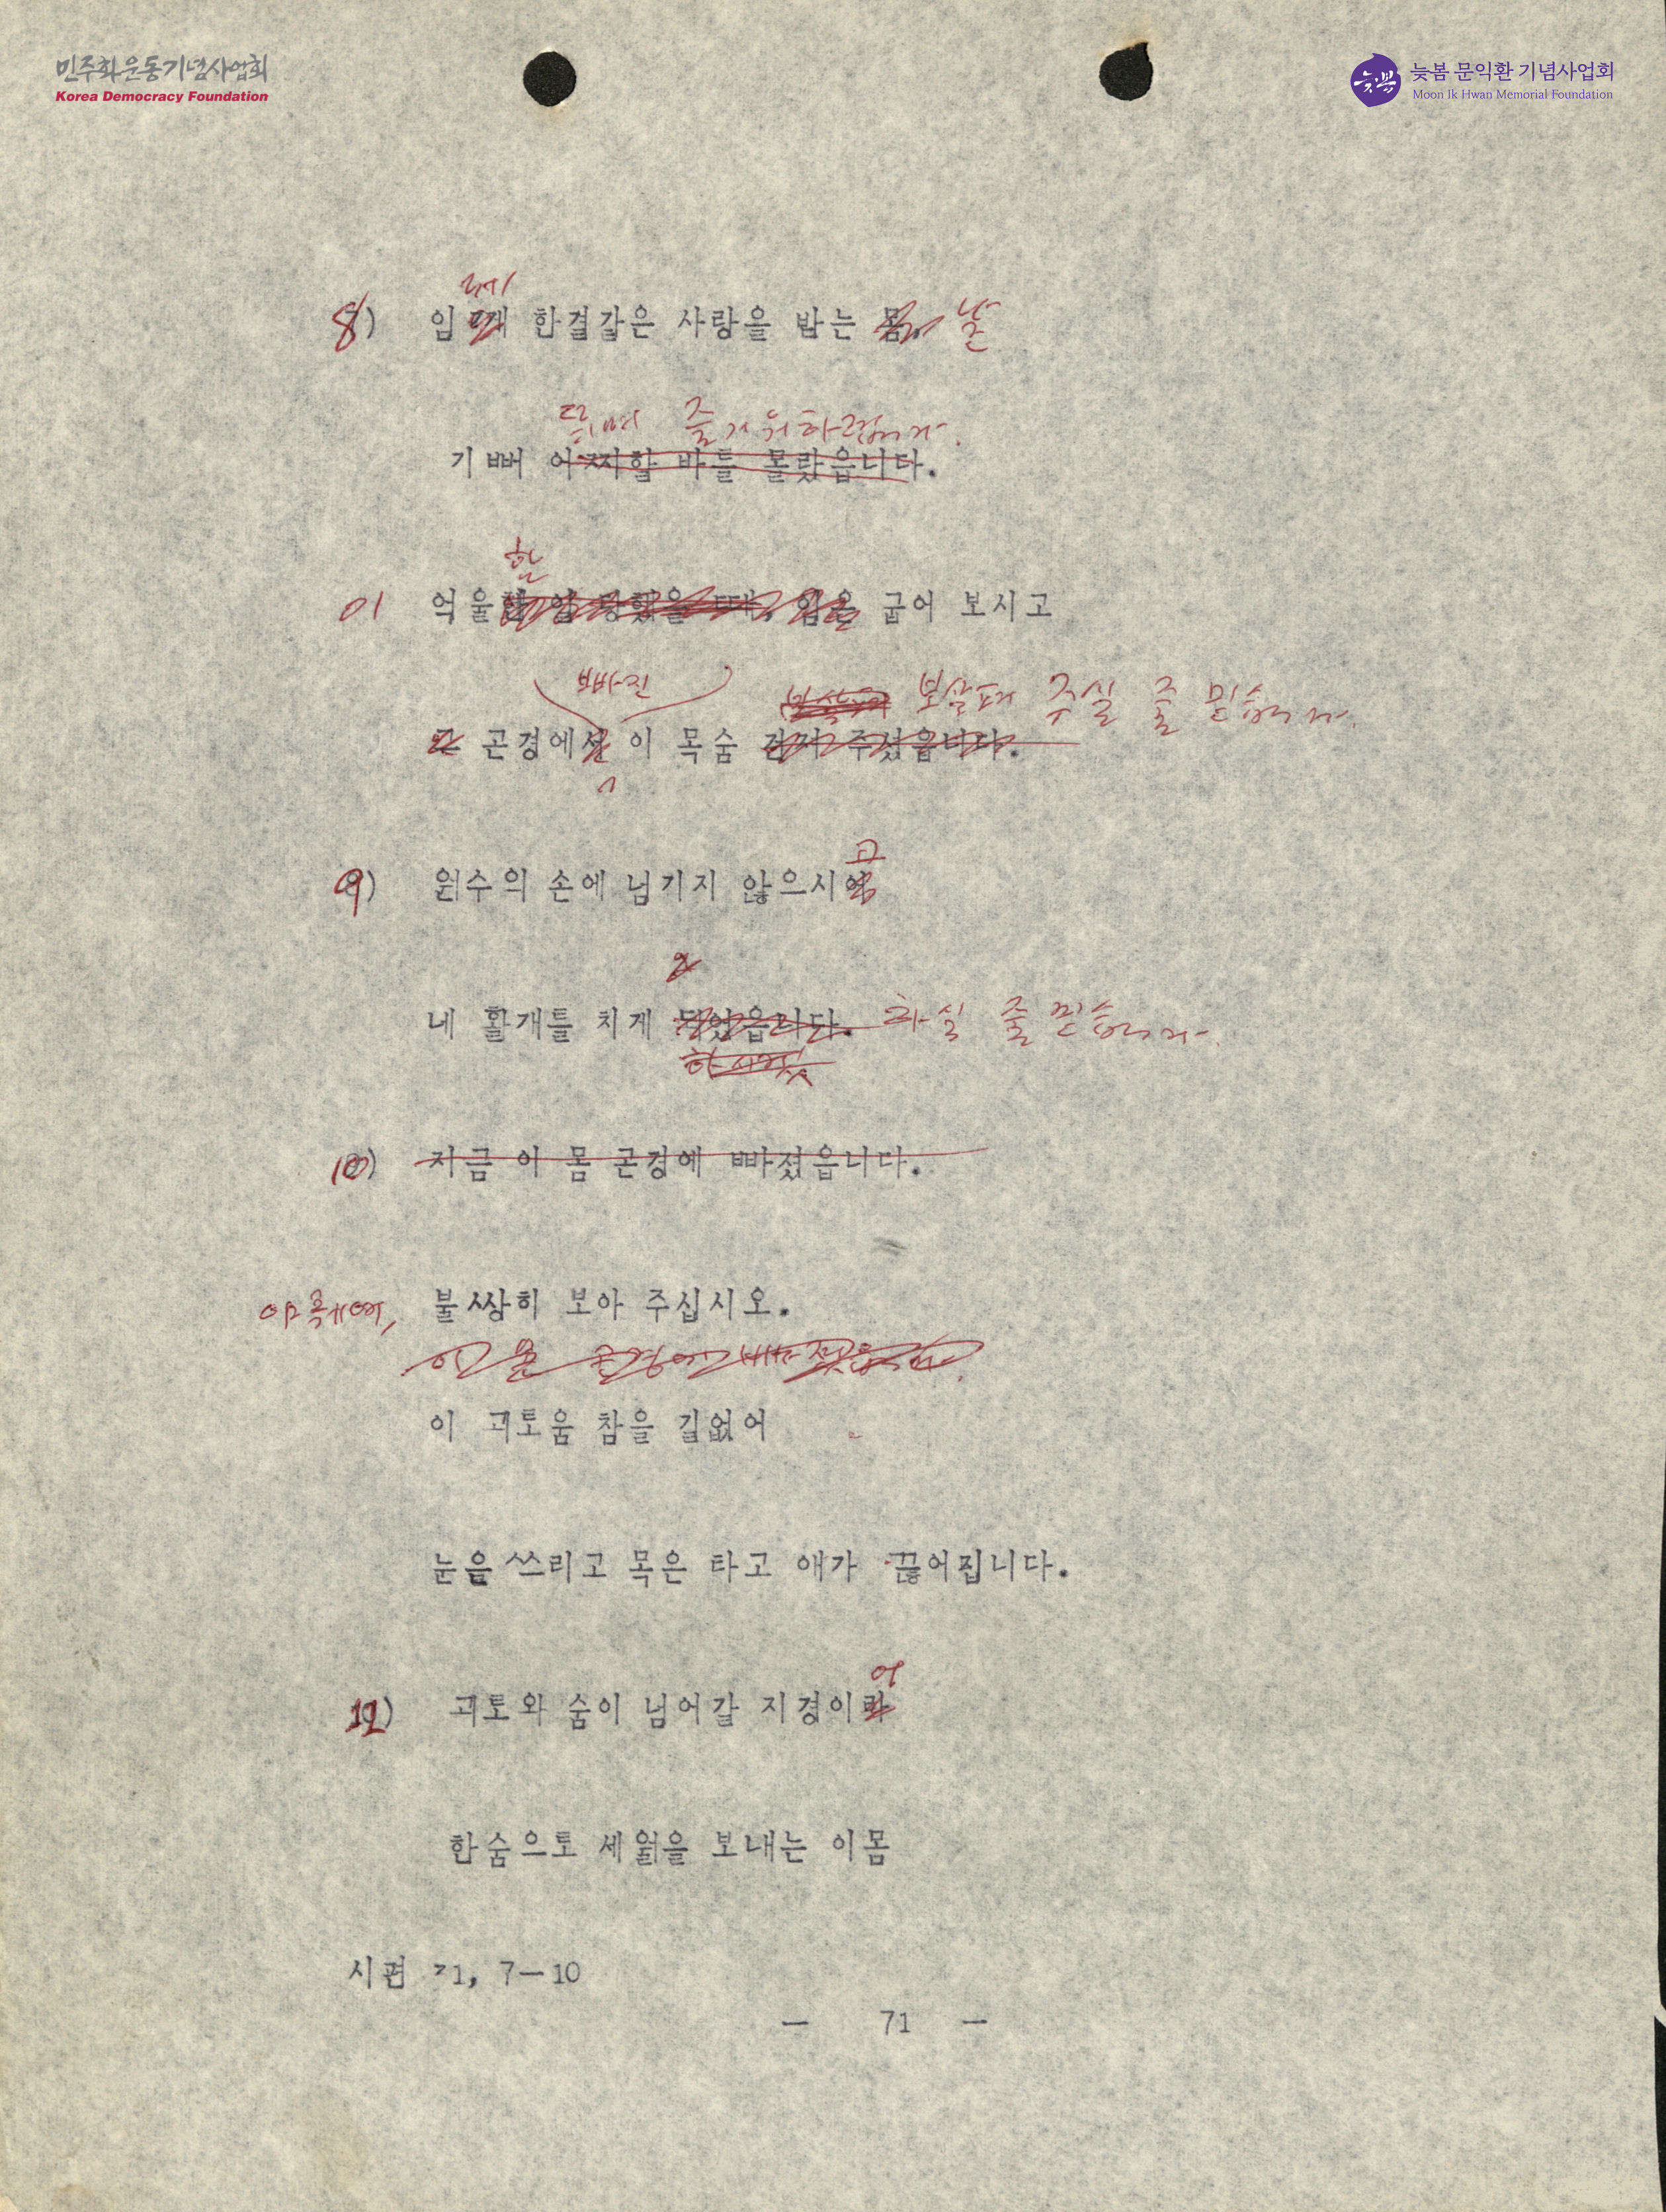 민주화운동기념사업회
Korea Democracy Foundation
늦봄
늦봄 문익환 기념사업회
Moon Ik Hwan Memorial Foundation
께
8) 임 한결같은 사랑을 받는 몸, 날
뛰며 즐거워하렵니다.
기뻐 어찌할 바를 몰랐읍니다.
한
이 억울한 일 당했을 때, 임은 굽어 보시고
빠진 보살펴 주실 줄 믿습니다.
그 곤경에서 이 목숨 건져 주셨읍니다.
고
9) 원수의 손에 넘기지 않으시어
네 활개를 치게 되었읍니다. 하실 줄 믿습니다.
10) 지금 이 몸 곤경에 빠졌읍니다.
야훼여, 불쌍히 보아 주십시오.
이 몸 곤경에 빠졌읍니다.
이 괴로움 참을 길없어
눈은 쓰리고 목은 타고 애가 끊어집니다.
어
11) 괴로와 숨이 넘어갈 지경이라
한숨으로 세월을 보내는 이몸
시편 31, 7-10
- 71 -